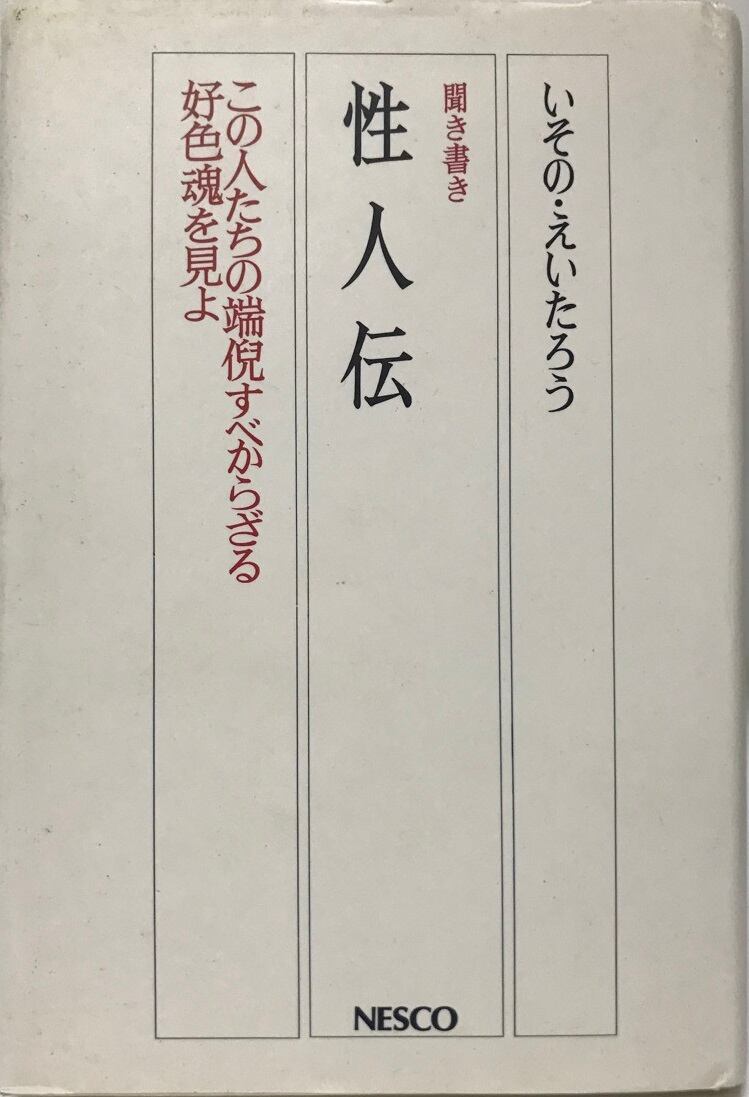 いその・えいたろう
聞き書き
性人伝
この人たちの端倪すべからざる
好色魂を見よ
NESCO